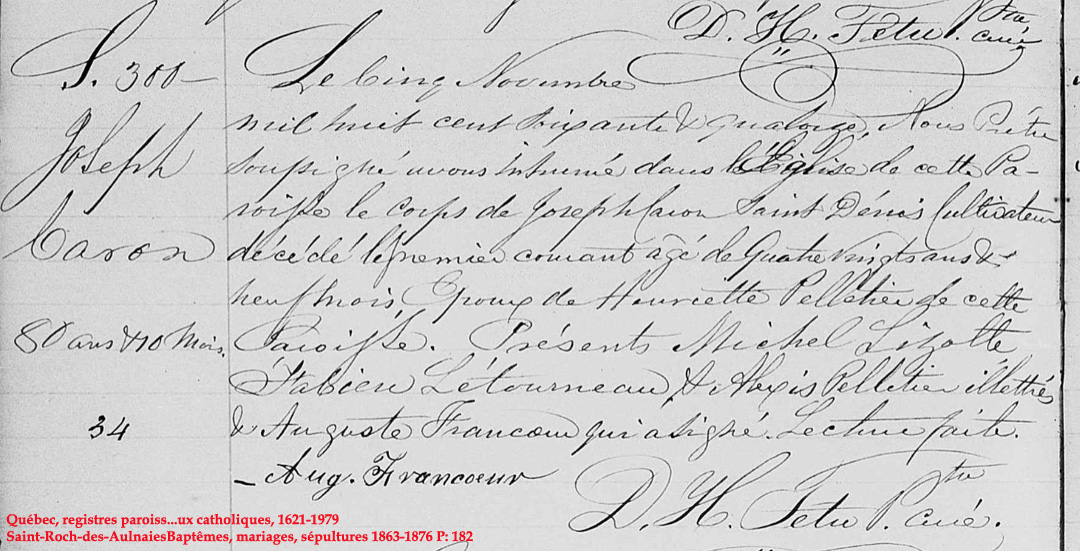 D. H. Tetu Ptre. curé
S. 300 –
Le Cinq Novembre
mil huit cent soixante & quatorze, Nous Prêtre
Joseph
soussigné avons inhumé dans l'Église de cette Pa-
roisse le corps de Joseph Caron Saint Dénis Cultivateur
Caron
décédé le premier courant agé de Quatre vingts ans &
neuf mois, Epoux de Henriette Pelletier de cette
80 ans & 10 Mois.
Paroisse. Présents Michel Lizotte
Fabien Létourneau, & Alexis Pelletier illettrés
34
& Auguste Francoeur qui a signé. Lecture faite.
– Aug. Francoeur
D. H. Tetu Ptre. curé.
Québec, registres paroiss...ux catholiques, 1621-1979
Saint-Roch-des-AulnaiesBaptêmes, mariages, sépultures 1863-1876 P: 182